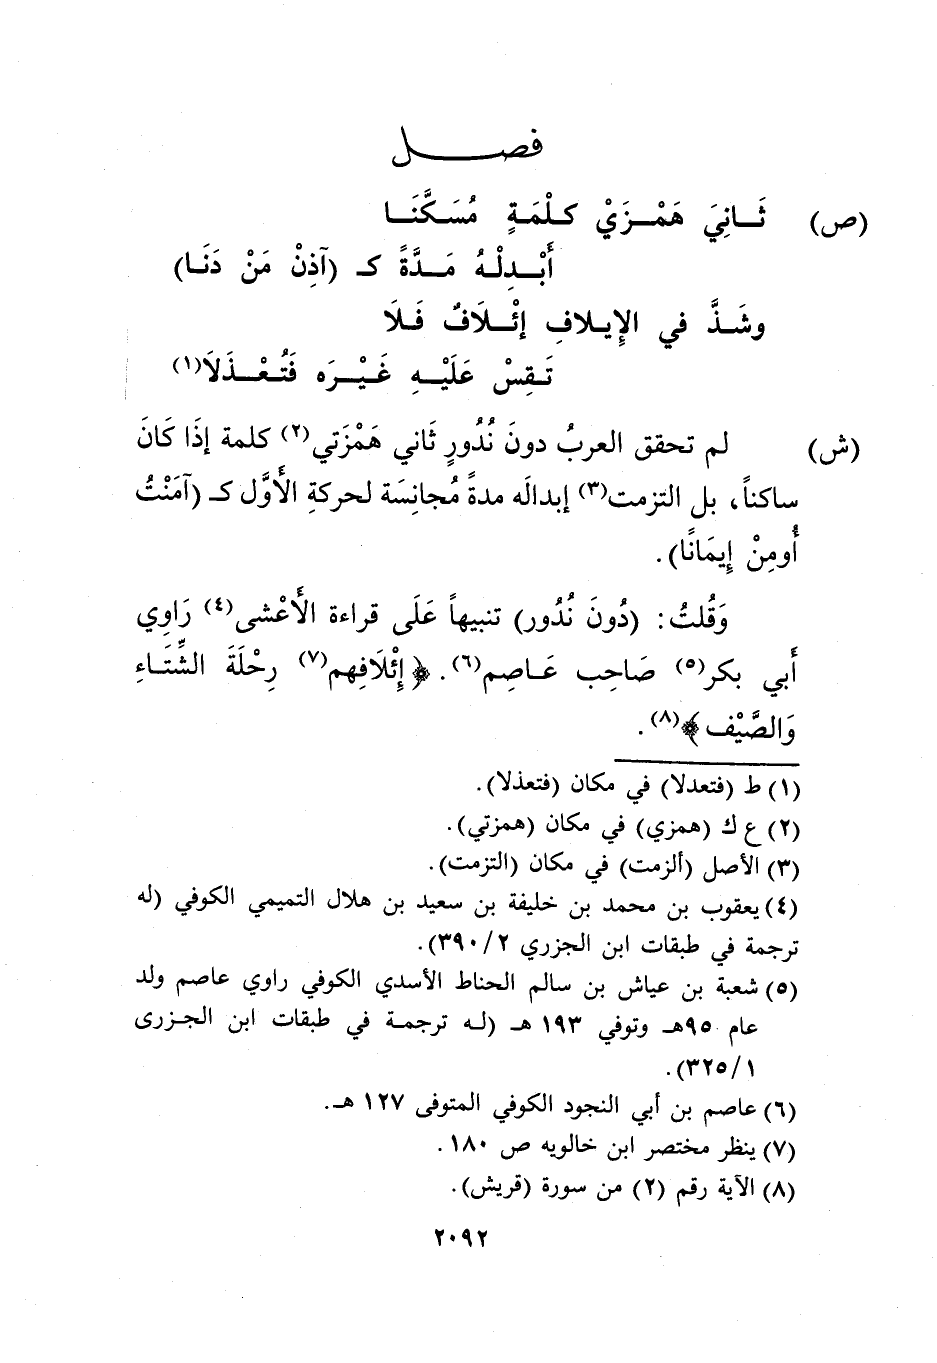 فصـــــل
(ص) ثَــانِيَ هَمْــزَيْ كلْمَـةٍ مُسَـكَّنَـا
أَبْـدِلْـهُ مَــدَّةً كـ (آذِنْ مَنْ دَنَـا)
وشَـذَّ في الإِيـلافِ إئْـلَافٌ فَـلَا
تَـقِسْ عَلَيْــهِ غَيْــرَه فَتُعْــذَلَا(١)
(ش) لم تحقق العربُ دونَ نُدُورٍ ثَاني هَمْزَتي(٢) كلمة إذَا كَانَ
ساكناً، بل التزمت(٣) إبدالَه مدةً مُجانِسَة لحركةِ الأَوَّل كـ (آمَنْتُ
أُومِنْ إِيمَانًا).
وَقُلتُ: (دُونَ نُدُور) تنبيهاً عَلَى قراءة الأَعْشى(٤) رَاوِي
أَبي بكر(٥) صَاحِب عَـاصِم(٦). ﴿إِئْلَافِهم(٧) رِحْلَةَ الشِّتَـاءِ
وَالصَّيْف﴾(٨).
(١) ط (فتعدلا) في مكان (فتعذلا).
(٢) ع ك (همزي) في مكان (همزتي).
(٣) الأصل (ألزمت) في مكان (التزمت).
(٤) يعقوب بن محمد بن خليفة بن سعيد بن هلال التميمي الكوفي (له
ترجمة في طبقات ابن الجزري ٢/ ٣٩٠).
(٥) شعبة بن عياش بن سالم الحناط الأسدي الكوفي راوي عاصم ولد
عام ٩٥هـ وتوفي ١٩٣ هـ (لـه ترجمـة في طبقات ابن الجـزرى
١/ ٣٢٥).
(٦) عاصم بن أبي النجود الكوفي المتوفى ١٢٧ هـ.
(٧) ينظر مختصر ابن خالويه ص ١٨٠.
(٨) الآية رقم (٢) من سورة (قريش).
٢٠٩٢